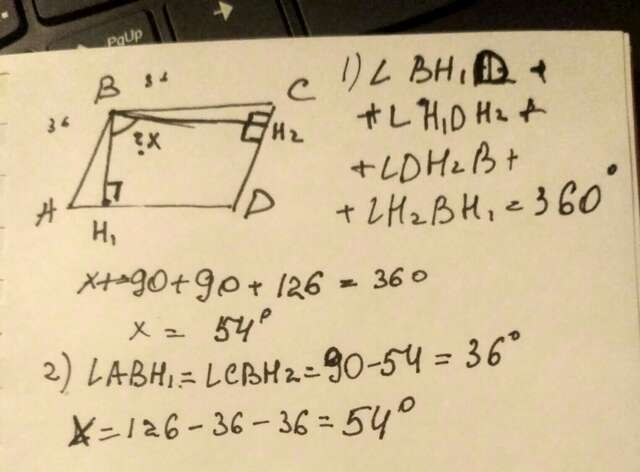 PgUp
B 36 C
36
?x
H₂
A H₁ D
1) ∠ BH₁D +
+ ∠ H₁DH₂ +
+ ∠DH₂B +
+ ∠H₂BH₁ = 360°
x + 90 + 90 + 126 = 360
x = 54°
2) ∠ABH₁ = ∠CBH₂ = 90 - 54 = 36°
X = 126 - 36 - 36 = 54°